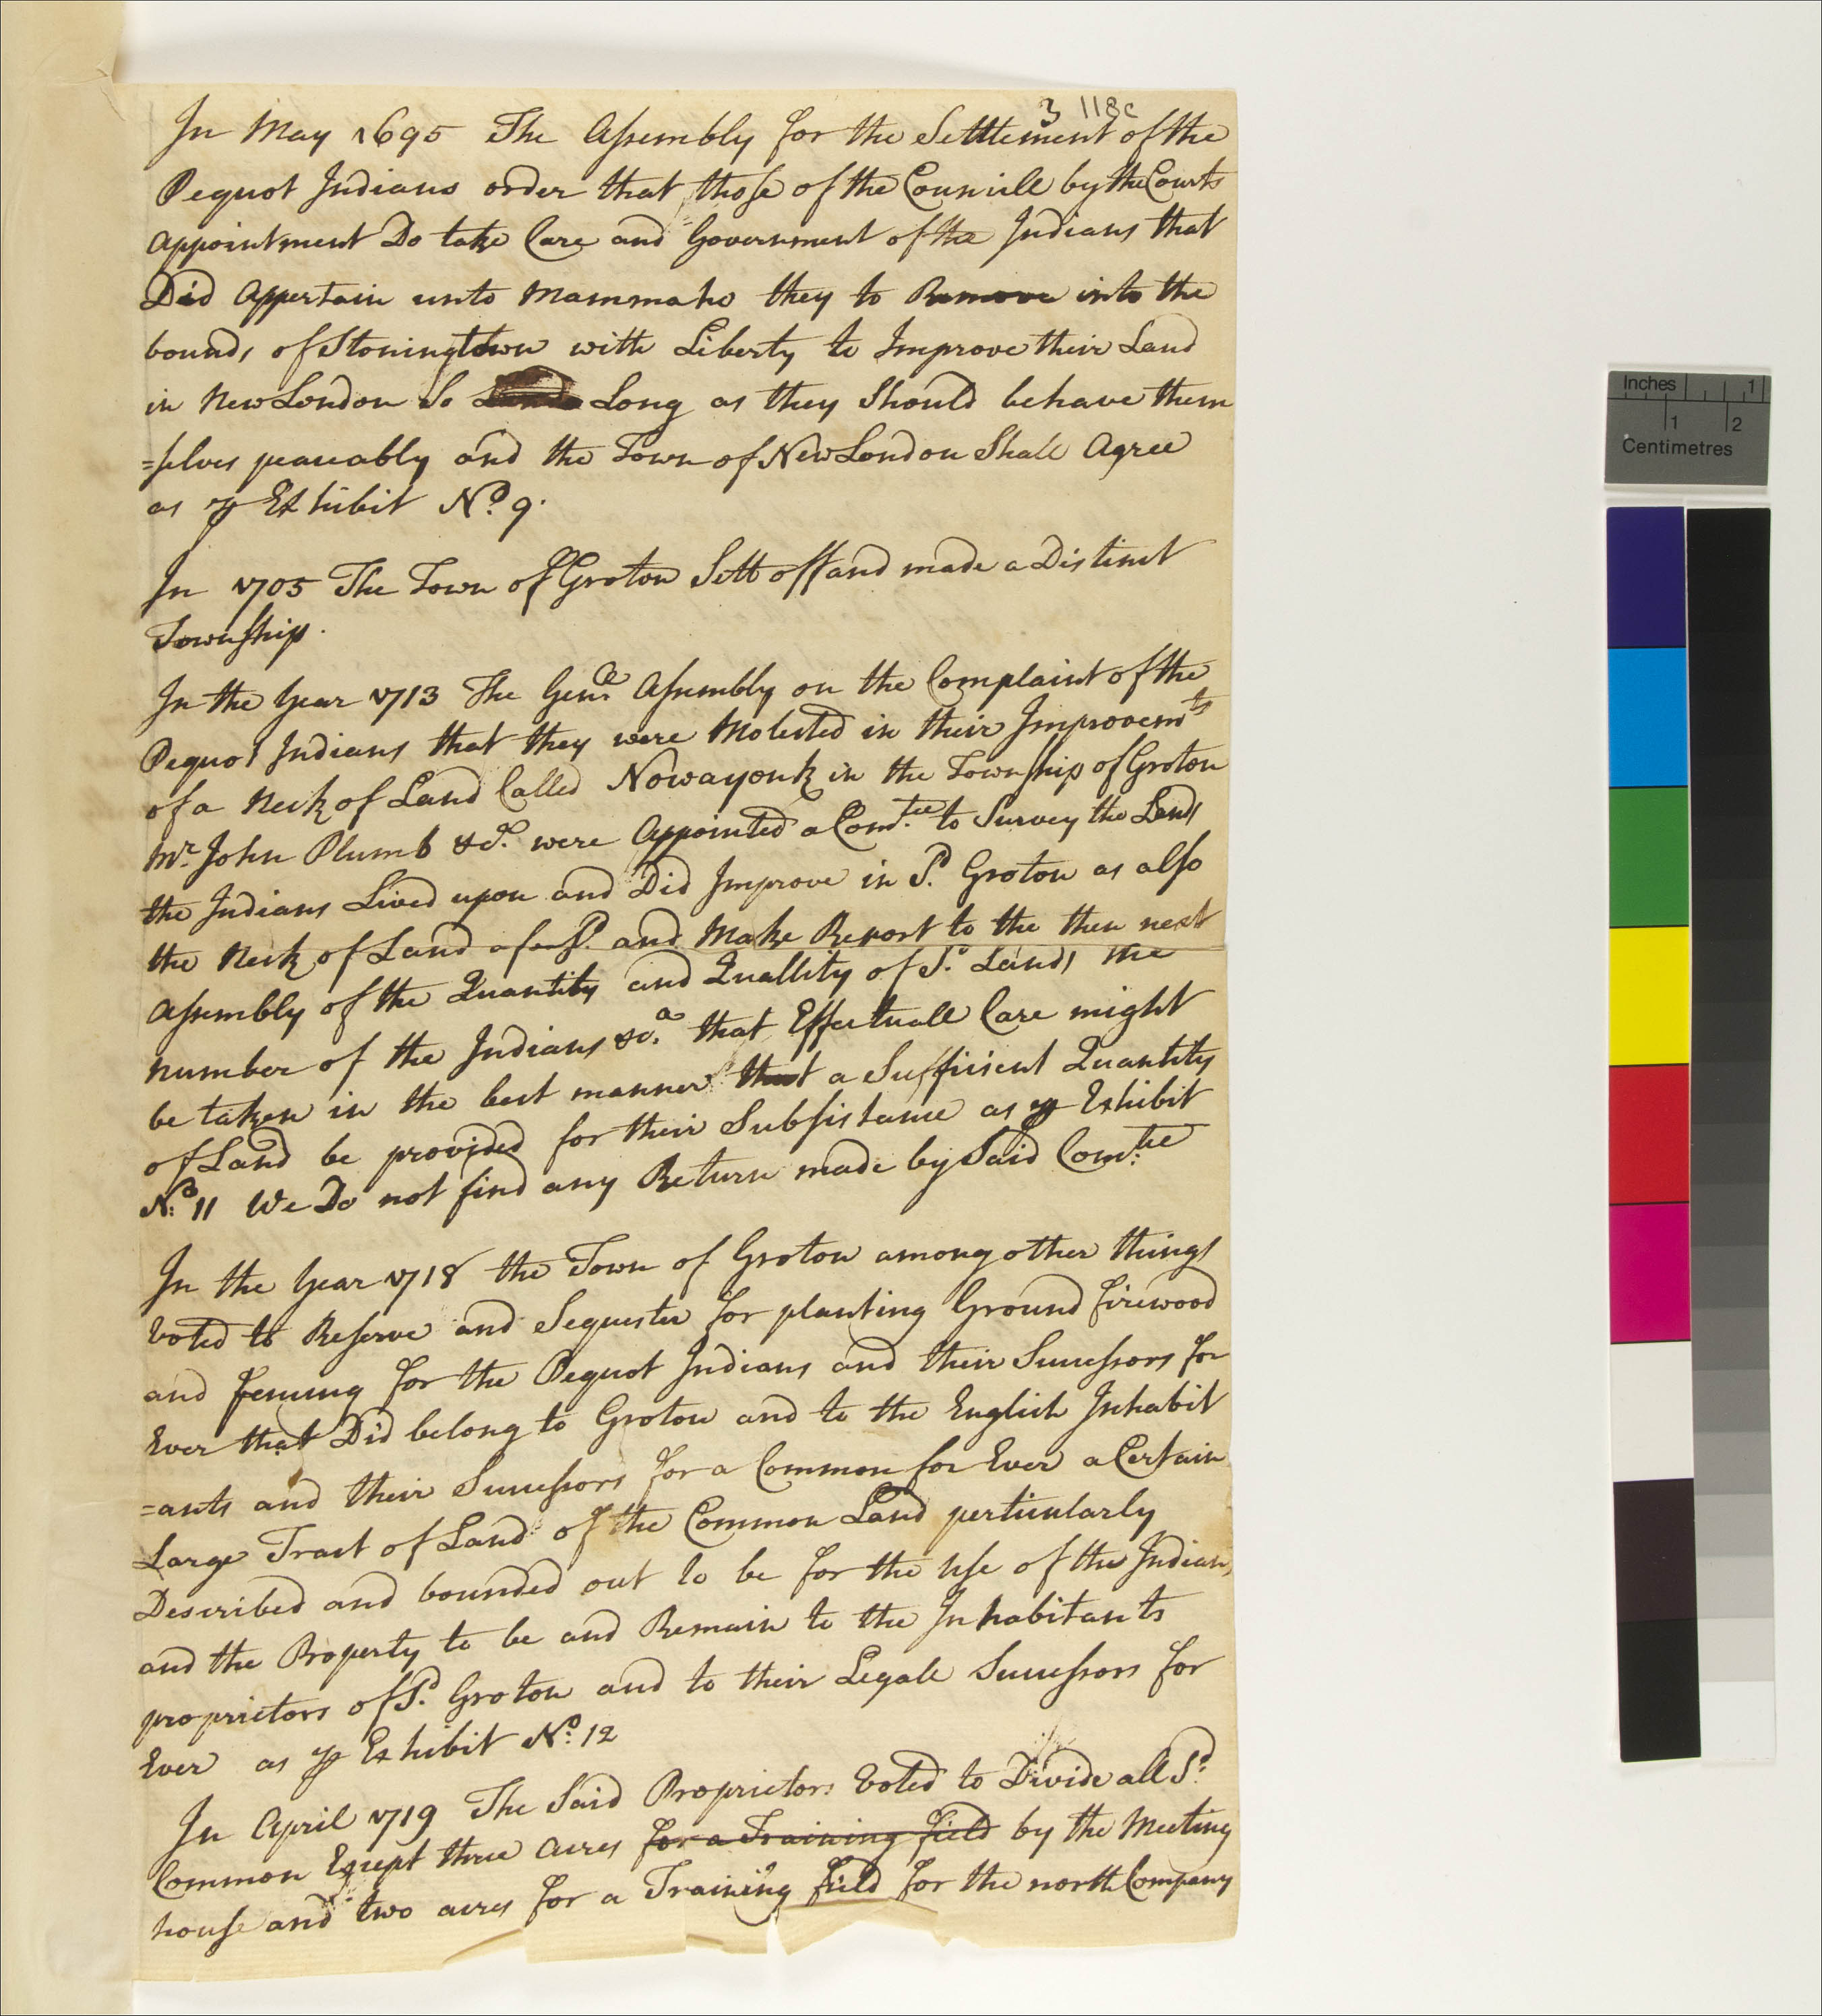 3 118c
In May 1695 The Assembly for the Settlement of the
Pequot Indians order that those of the Councill by the Courts
appointment Do take Care and Government of the Indians that
Did Appertain unto Mammaho they to Remove into the
bounds of Stoningtown with Liberty to Improve their Land
in New London So Long as they Should behave them
=selves peaceably and the Town of New London Shall Agree
as ꝑ Exhibit No. 9.
In 1705 The Town of Groton Sett off and made a Distinct
Township.
In the Year 1713 The Genll Assembly on the Complaint of the
Pequot Indians that they were Molested in their Improvemts
of a Neck of Land Called Nowayonk in the Township of Groton
Mr. John Plumb &c. were Appointed a Comtee to Survey the Lands
the Indians Lived upon and Did Improve in Sd. Groton as also
the Neck of Land afors.d and Make Report to the then next
Assembly of the Quantity and Quallity of Sd. Lands the
number of the Indians &c.a that Effectuall Care might
be taken in the best manner that a Sufficient Quantity
of Land be provided for their Subsistance as ꝑ Exhibit
No. 11 We Do not find any Return made by Said Com:tee
In the Year 1718 the Town of Groton among other things
Voted to Reserve and Sequester for planting Ground firewood
and fencing for the Pequot Indians and their Successors for
Ever that Did belong to Groton and to the English Inhabit
=ants and their Successors for a Common for Ever a Certain
Large Tract of Land of the Common Land perticularly
Described and bounded out to be for the Use of the Indians
and the Property to be and Remain to the Inhabitants
proprietors of Sd. Groton and to their Legall Successors for
Ever as ꝑ Exhibit No. 12
In April 1719 The Said Proprietors Voted to Divide all Sd.
Common Except three acres for a Training field by the Meeting
house and two acres for a Training field for the north Company
Inches 1
1 2
Centimetres